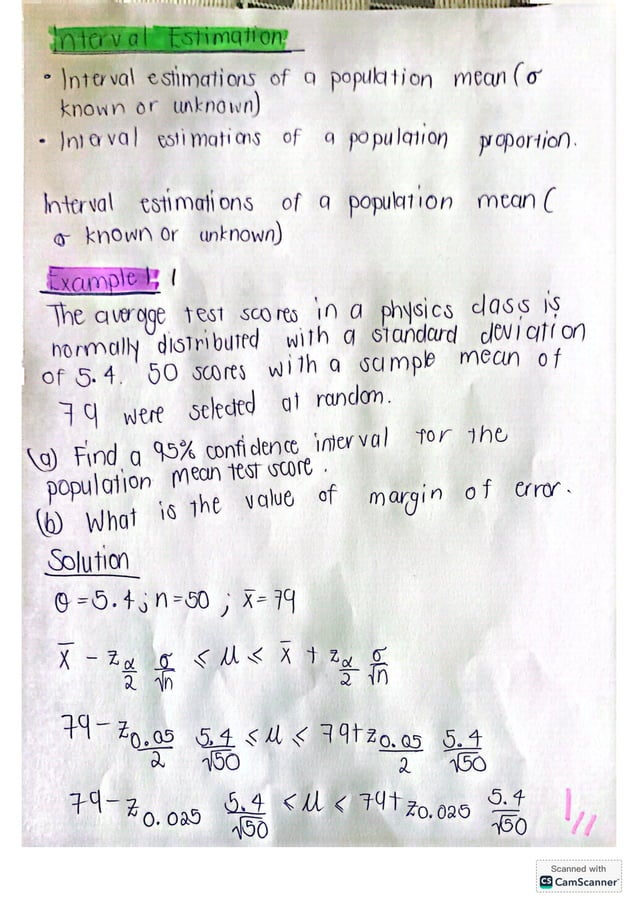 Interval Estimation:
• Interval estimations of a population mean (σ
known or unknown)
• Interval estimations of a population proportion.
Interval estimations of a population mean (
σ known or unknown)
Example 1: 1
The average test scores in a physics class is
normally distributed with a standard deviation
of 5.4. 50 scores with a sample mean of
79 were selected at random.
(a) Find a 95% confidence interval for the
population mean test score.
(b) What is the value of margin of error.
Solution
σ = 5.4; n = 50 ; x̄ = 79
x̄ - z_α/2 σ/√n < μ < x̄ + z_α/2 σ/√n
79 - z_0.05/2 5.4/√50 < μ < 79 + z_0.05/2 5.4/√50
79 - z_0.025 5.4/√50 < μ < 79 + z_0.025 5.4/√50
Scanned with
CS CamScanner